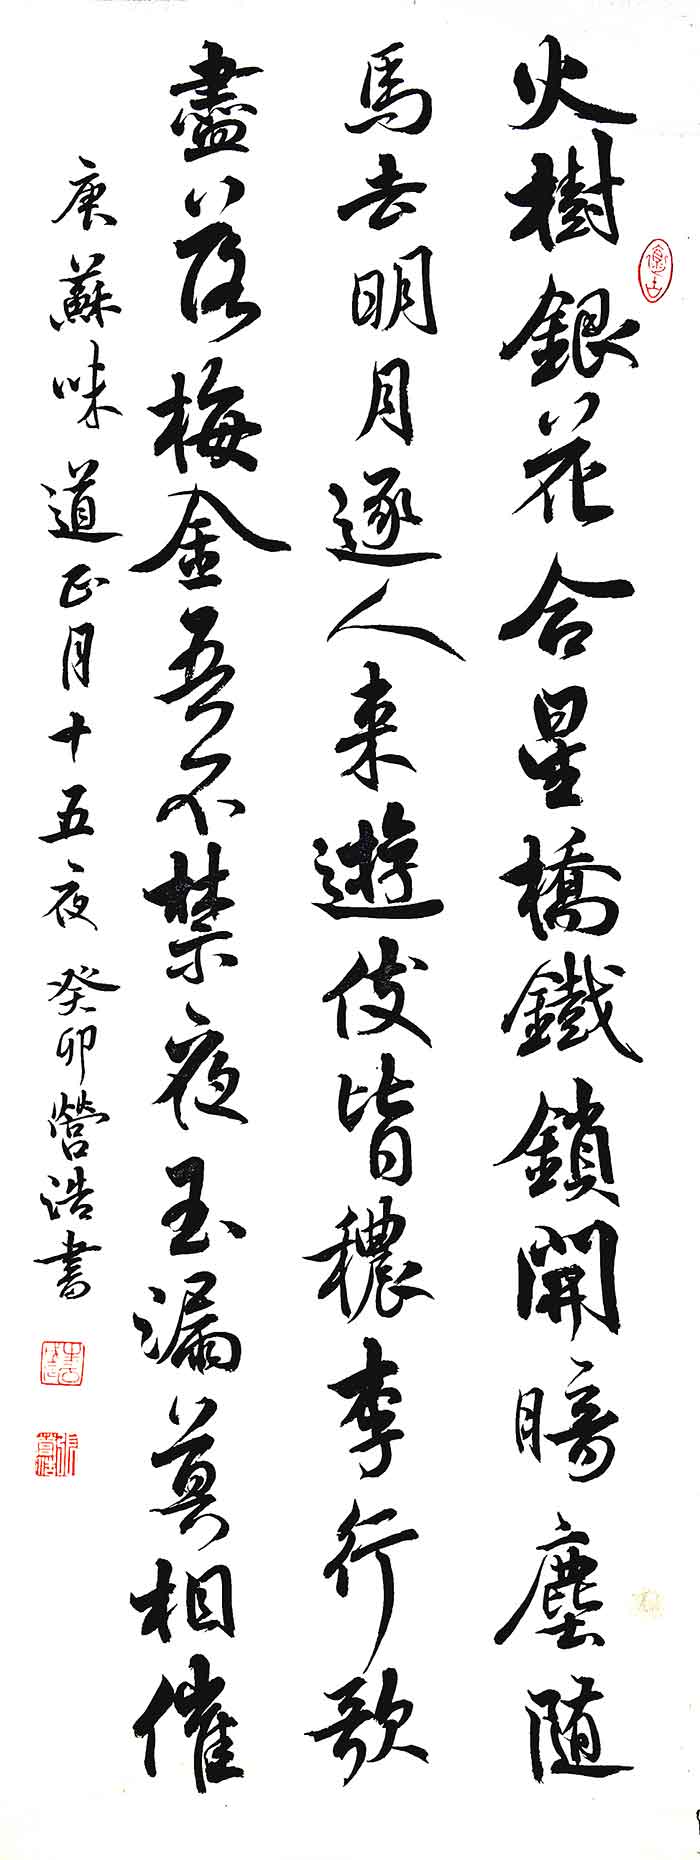 火樹銀花合星橋鐵鎖開暗塵随
馬去明月逐人来遊伎皆穠李行歌
盡落梅金吾不禁夜玉漏莫相催
唐蘇味道正月十五夜 癸卯營浩書